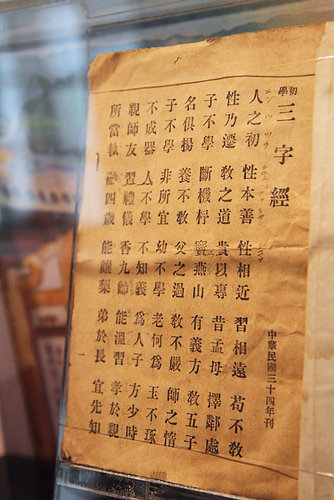 初學
三字經
中華民國三十四年刊
人之初 性本善 性相近 習相遠 苟不教
性乃遷 教之道 貴以專 昔孟母 擇鄰處
子不學 斷機杼 竇燕山 有義方 教五子
名俱揚 養不教 父之過 教不嚴 師之惰
子不學 非所宜 幼不學 老何為 玉不琢
不成器 人不學 不知義 為人子 方少時
親師友 習禮儀 香九齡 能溫習 孝於親
所當執 融四歲 能讓梨 弟於長 宜先知
一